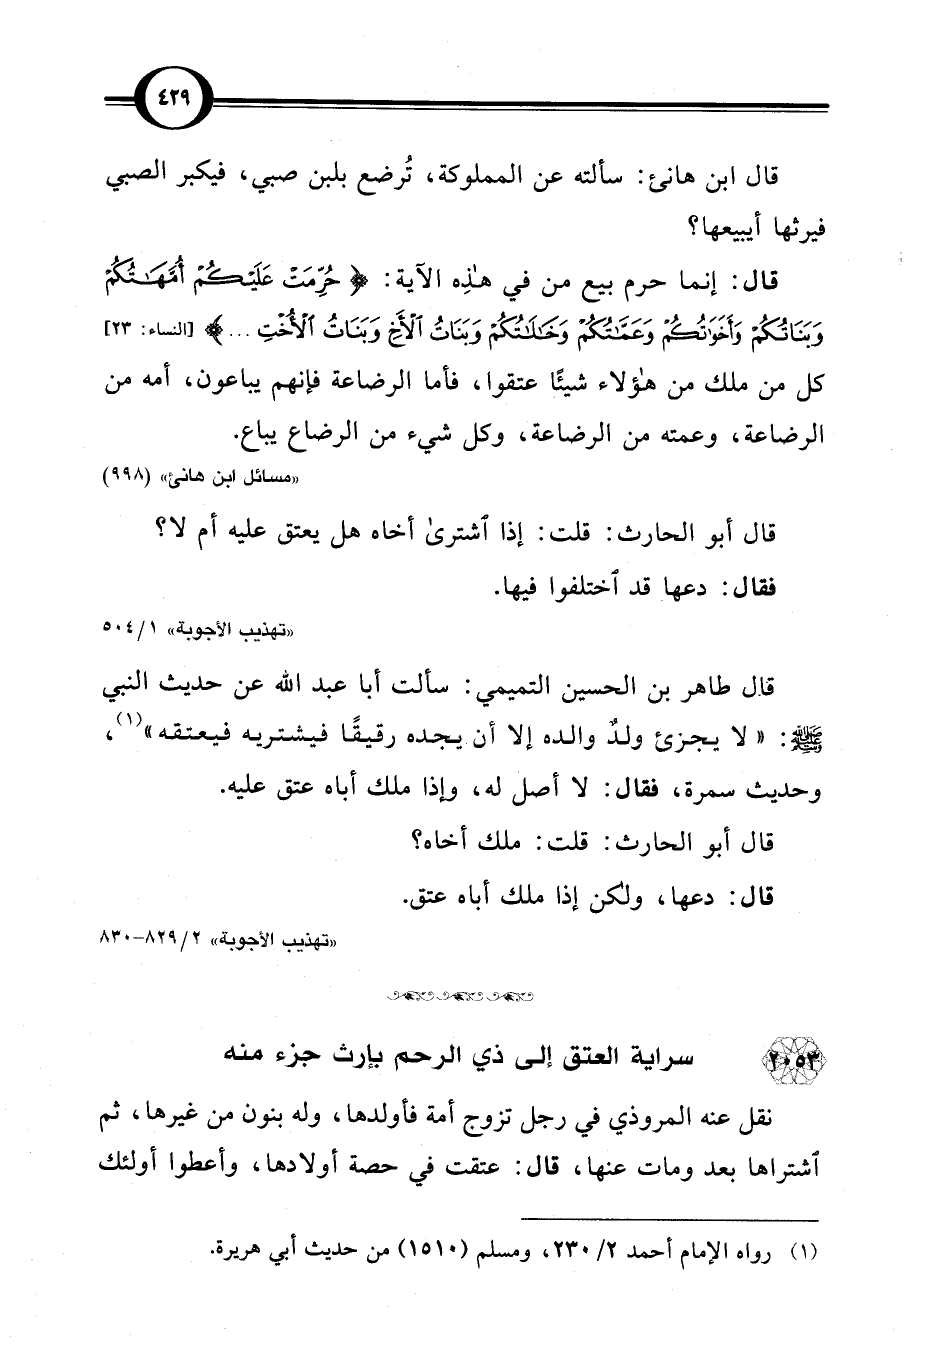 ٤٢٩
قال ابن هانئ: سألته عن المملوكة، تُرضع بلبن صبي، فيكبر الصبي
فيرثها أيبيعها؟
قال: إنما حرم بيع من في هذِه الآية: ﴿ حُرِّمَتْ عَلَيْكُمْ أُمَّهَـٰتُكُمْ
وَبَنَاتُكُمْ وَأَخَوَٰتُكُمْ وَعَمَّـٰتُكُمْ وَخَـٰلَـٰتُكُمْ وَبَنَاتُ ٱلْأَخِ وَبَنَاتُ ٱلْأُخْتِ ... ﴾ [النساء: ٢٣]
كل من ملك من هؤلاء شيئًا عتقوا، فأما الرضاعة فإنهم يباعون، أمه من
الرضاعة، وعمته من الرضاعة، وكل شيء من الرضاع يباع.
«مسائل ابن هانئ» (٩٩٨)
قال أبو الحارث: قلت: إذا ٱشترىٰ أخاه هل يعتق عليه أم لا؟
فقال: دعها قد ٱختلفوا فيها.
«تهذيب الأجوبة» ١/ ٥٠٤
قال طاهر بن الحسين التميمي: سألت أبا عبد الله عن حديث النبي
ﷺ: « لا يجزئ ولدٌ والده إلا أن يجده رقيقًا فيشتريه فيعتقه»(١)،
وحديث سمرة، فقال: لا أصل له، وإذا ملك أباه عتق عليه.
قال أبو الحارث: قلت: ملك أخاه؟
قال: دعها، ولكن إذا ملك أباه عتق.
«تهذيب الأجوبة» ٢/ ٨٢٩-٨٣٠
٢٠٥٣ سراية العتق إلى ذي الرحم بإرث جزء منه
نقل عنه المروذي في رجل تزوج أمة فأولدها، وله بنون من غيرها، ثم
ٱشتراها بعد ومات عنها، قال: عتقت في حصة أولادها، وأعطوا أولئك
(١) رواه الإمام أحمد ٢/ ٢٣٠، ومسلم (١٥١٠) من حديث أبي هريرة.